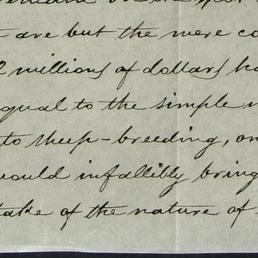 are but the mere
millions of dollars
equal to the simple
to sheep-breeding, on
would infallibly bring
take of the nature of